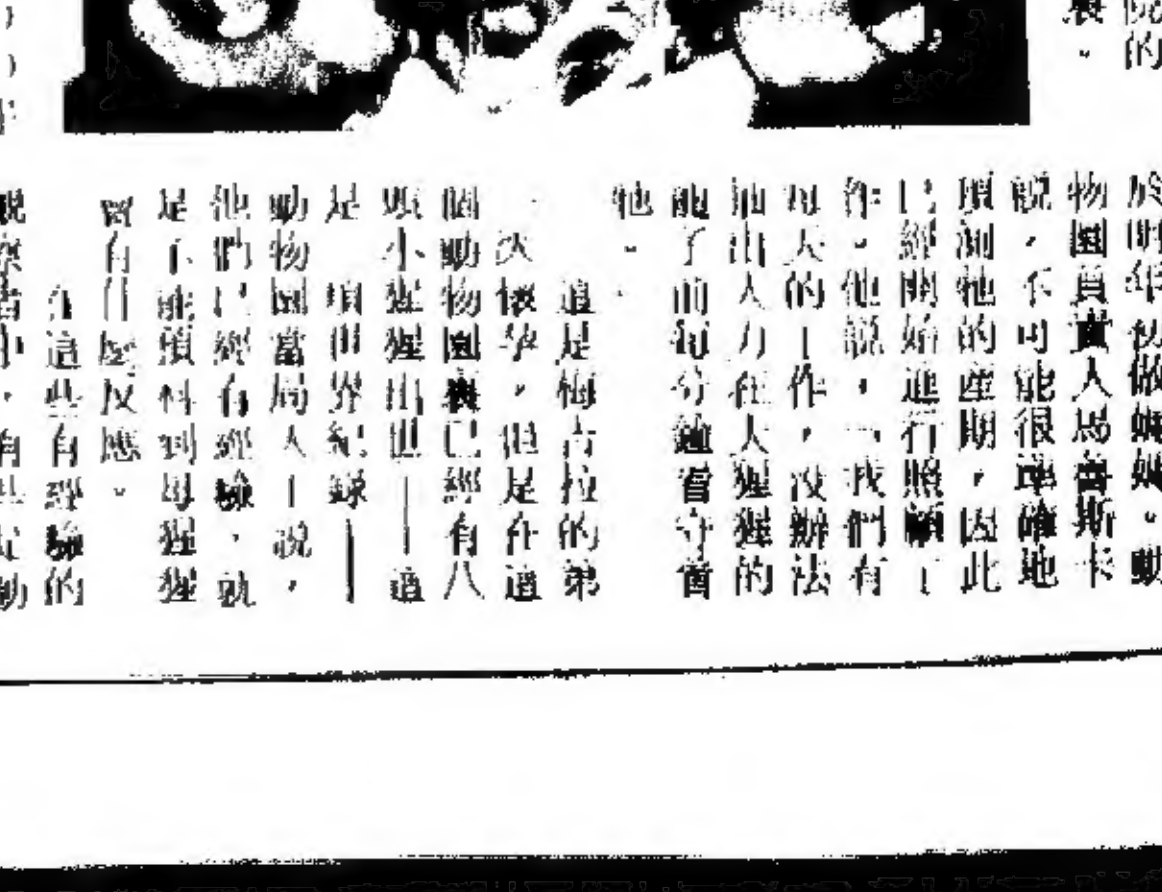 院的
裏。
於明年初做媽媽。動
物園負責人馬魯斯卡
說,不可能很準確地
預測牠的產期,因此
已經開始進行照顧工
作。他說,「我們有
每天的工作,沒辦法
抽出人力在大猩猩的
前每分鐘看守着
牠。
這是梅古拉的第
一次懷孕,但是在這
個動物園裏已經有八
頭小猩猩出世——這
是一項世界紀錄——
動物園當局人士說,
他們已經有經驗,就
是不能預料到母猩猩
會有什麼反應。
在這些有經驗的
觀察者中,有些是動